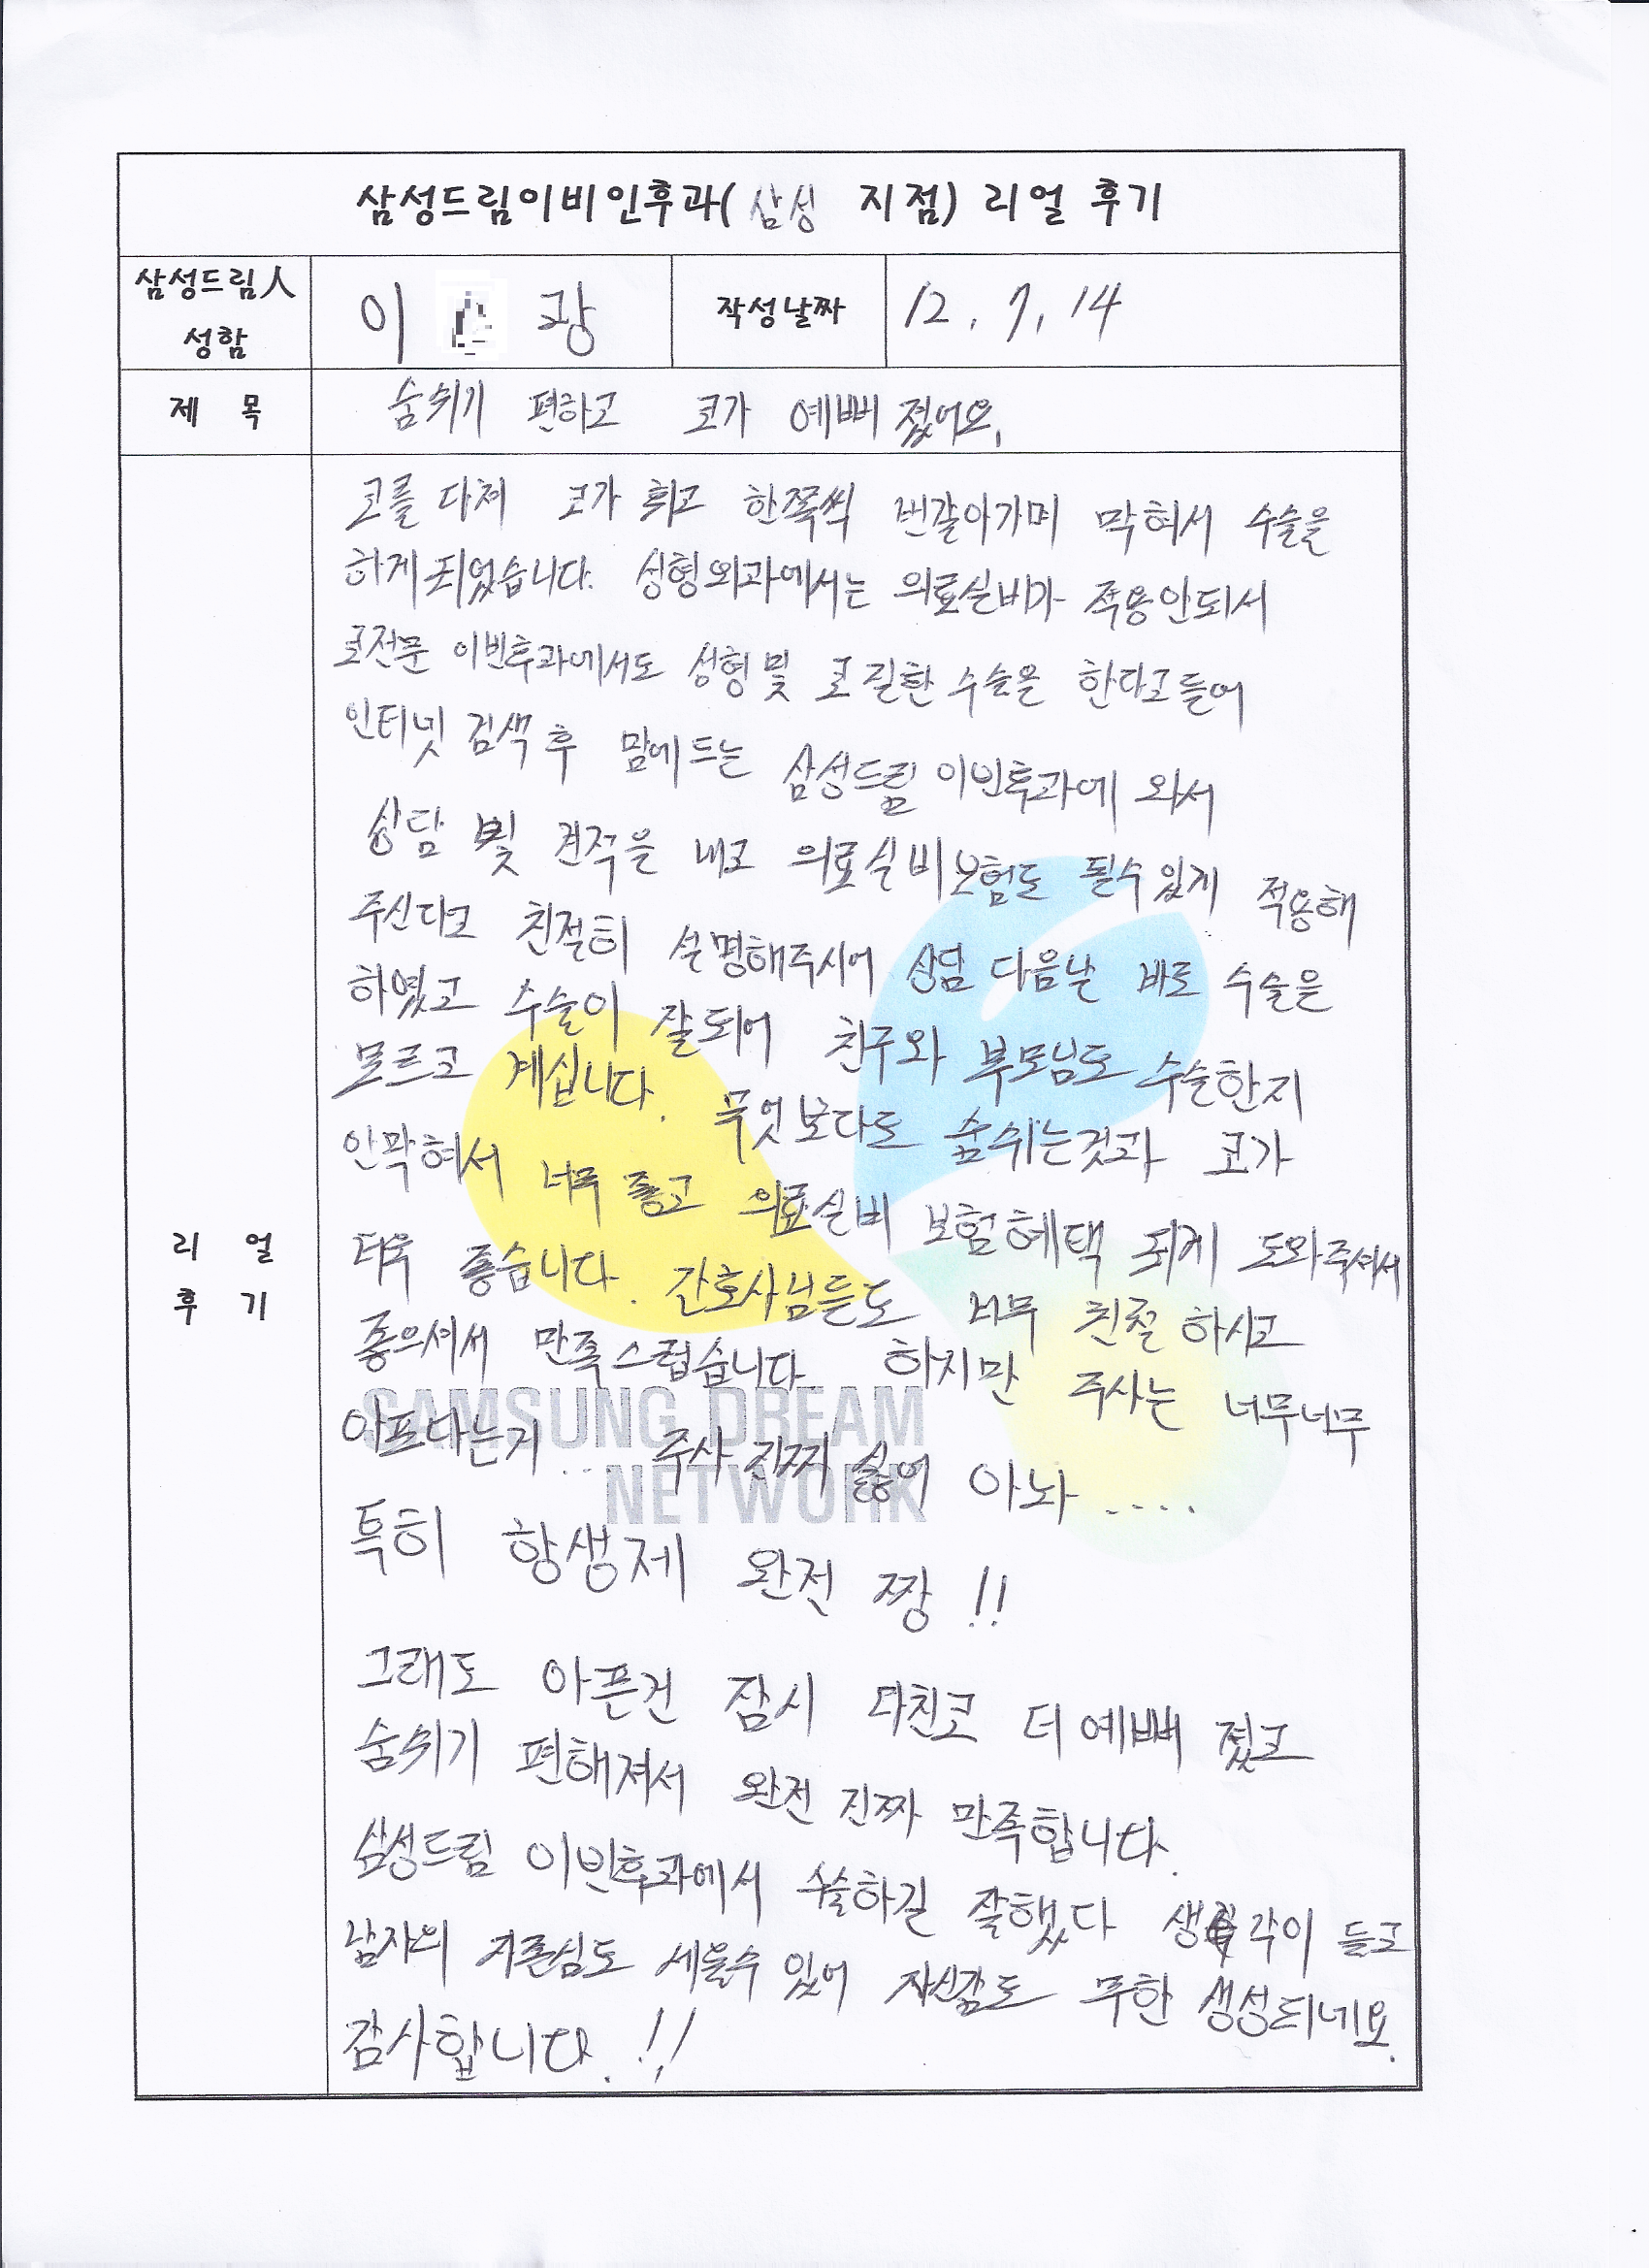 삼성드림이비인후과(삼성 지점) 리얼 후기
삼성드림人 성함
이 광
작성날짜
12. 7. 14
제 목
숨쉬기 편하고 코가 예뻐졌어요.
리 얼
후 기
코를 다쳐 코가 휘고 한쪽씩 번갈아가며 막혀서 수술을
하게 되었습니다. 성형외과에서는 의료실비가 적용안되서
코전문 이빈후과에서도 성형및 코질환 수술을 한다고들어
인터넷 검색 후 맘에드는 삼성드림 이빈후과에 와서
상담 및 견적을 내고 의료실비보험도 될수있게 적용해
주신다고 친절히 설명해주시어 상담 다음날 바로 수술은
하였고 수술이 잘되어 친구와 부모님도 수술한지
모르고 계십니다. 무엇보다도 숨쉬는것과 코가
안막혀서 너무 좋고 의료실비 보험혜택 되게 도와주셔서
더욱 좋습니다. 간호사님들도 너무 친절 하시고
좋으셔서 만족스럽습니다. 하지만 주사는 너무너무
아프다는거.... 주사 진짜 싫어 아놔....
특히 항생제 완전 짱!!
그래도 아픈건 잠시 다친코 더 예뻐 졌고
숨쉬기 편해져서 완전 진짜 만족합니다.
삼성드림 이빈후과에서 수술하길 잘했다 생각이 들고
남자의 자존심도 세울수 있어 자신감도 무한 생성되네요.
감사합니다.!!
SAMSUNG DREAM
NETWORK